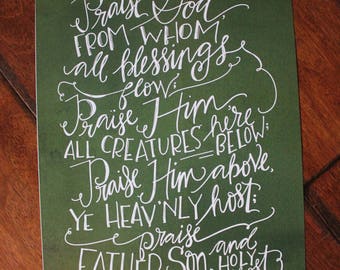 Praise God
FROM WHOM
all blessings
flow;
Praise Him
ALL CREATURES here
BELOW;
Praise Him above,
YE HEAV'NLY host;
praise
FATHER, SON, and
HOLY